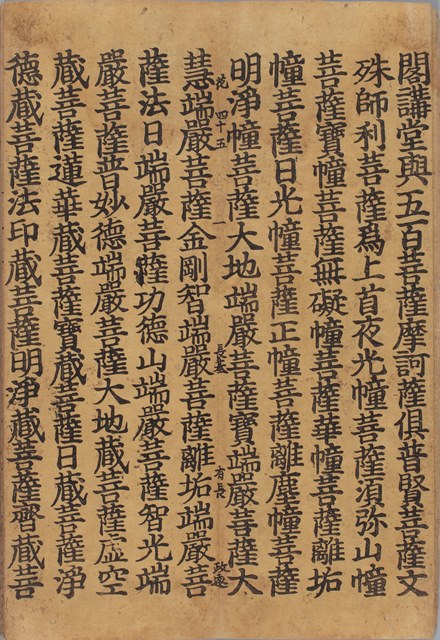 閣講堂與五百菩薩摩訶薩俱普賢菩薩文
殊師利菩薩爲上首夜光幢菩薩須弥山幢
菩薩寶幢菩薩無礙幢菩薩華幢菩薩離垢
幢菩薩日光幢菩薩正幢菩薩離塵幢菩薩
明淨幢菩薩大地端嚴菩薩寶端嚴菩薩大
四十五 一 有長
慧端嚴菩薩金剛智端嚴菩薩離垢端嚴菩
薩法日端嚴菩薩功德山端嚴菩薩智光端
嚴菩薩普妙德端嚴菩薩大地藏菩薩虛空
藏菩薩蓮華藏菩薩寶藏菩薩日藏菩薩淨
德藏菩薩法印藏菩薩明淨藏菩薩齊藏菩